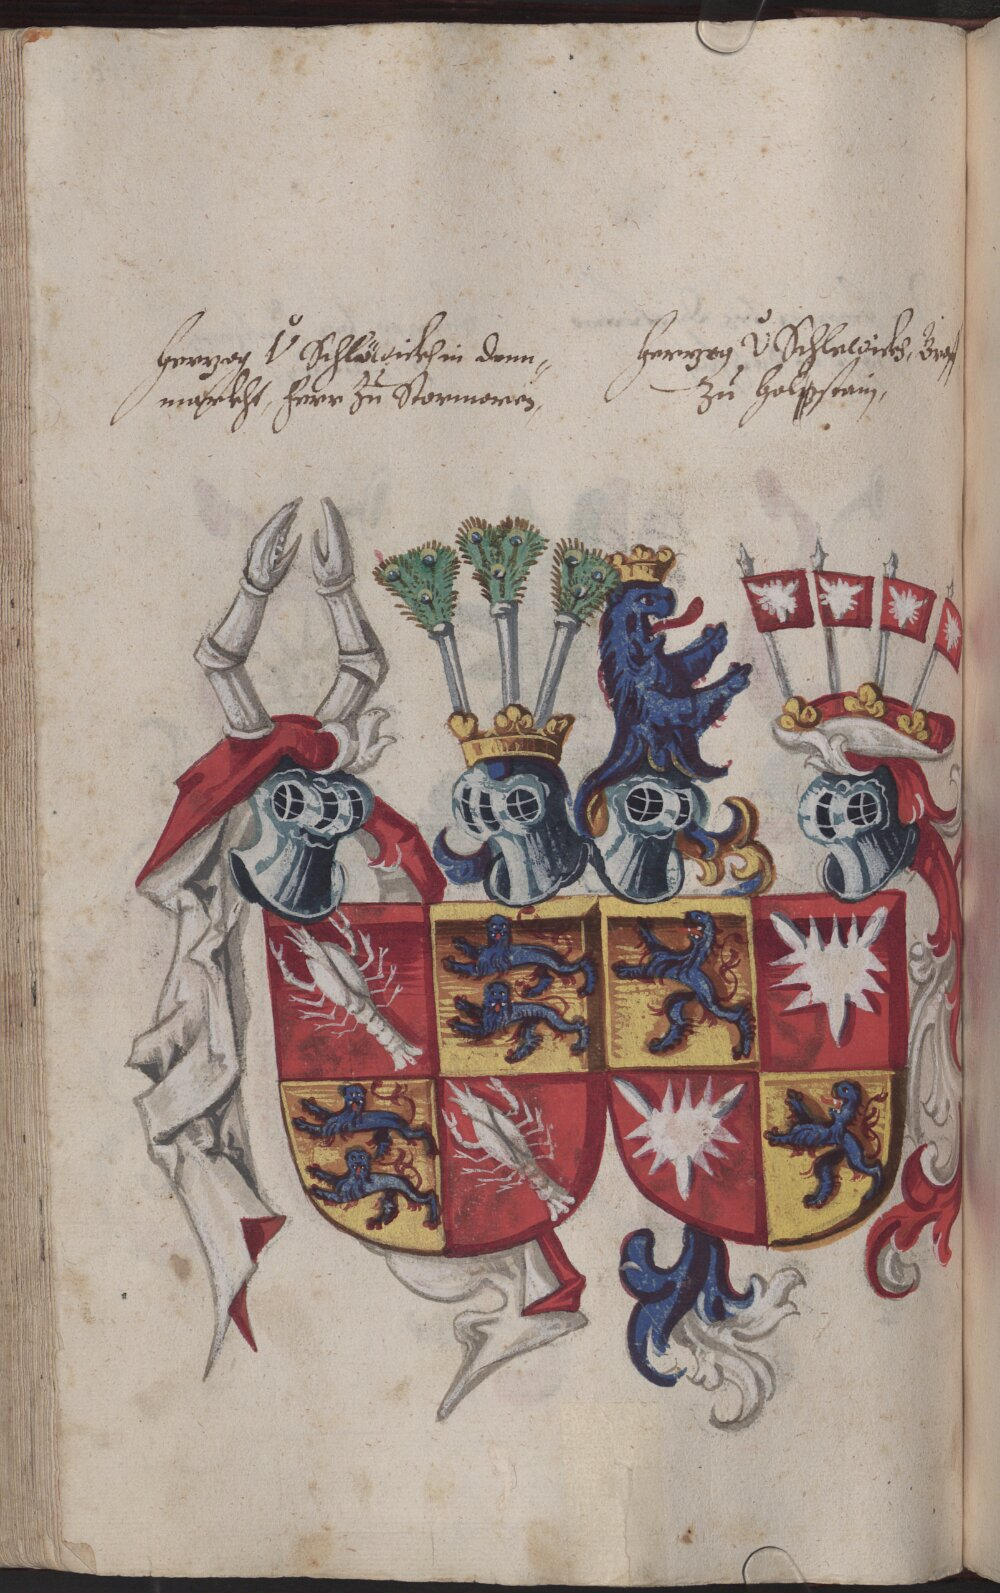 Hertzog V Schleswickh in Denn-
markht, Herr zu Stormaren,
Hertzog V Schleswickh, Graff
zu Holsstain,